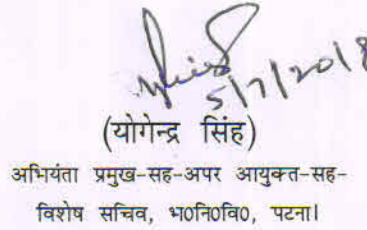 5/7/2018
(योगेन्द्र सिंह)
अभियंता प्रमुख-सह-अपर आयुक्त-सह-
विशेष सचिव, भ0नि0वि0, पटना।